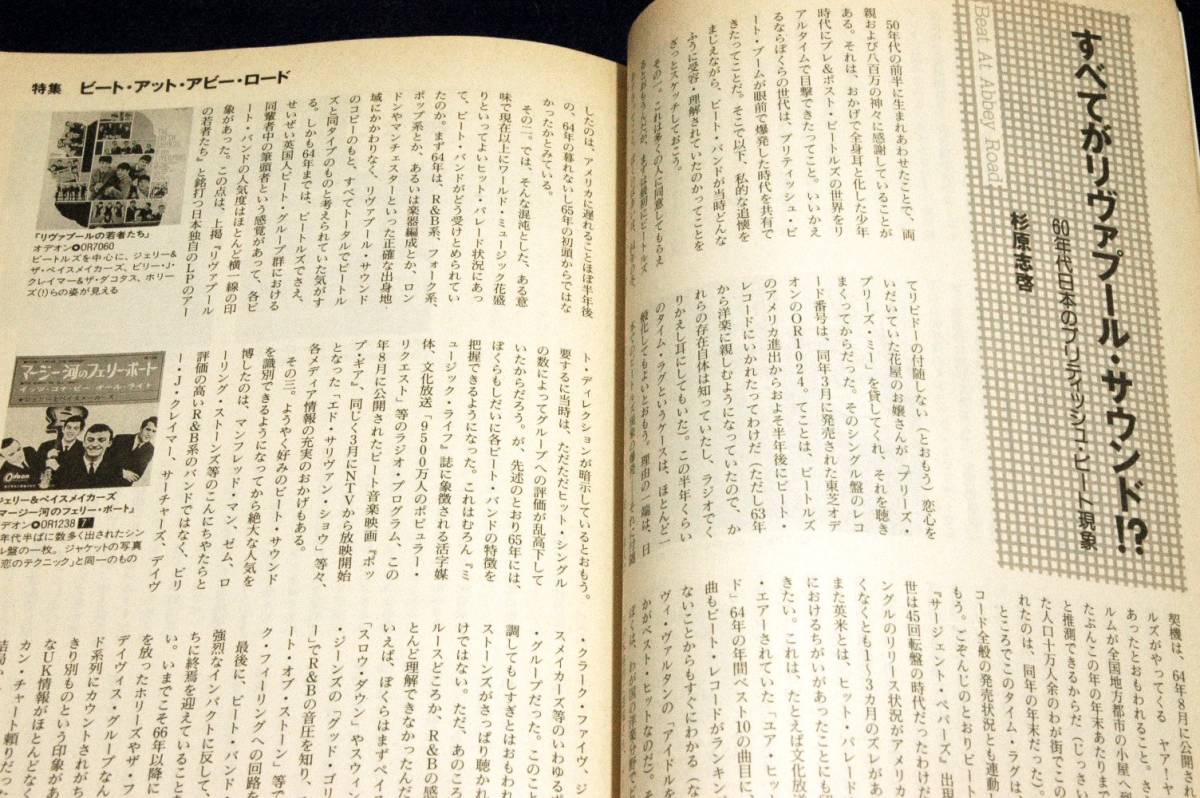 Beat At Abbey Road
すべてがリヴァプール・サウンド!?
60年代日本のブリティッシュ・ビート現象
杉原志啓
50年代の前半に生まれあわせたことで、両
親および八百万の神々に感謝していることが
ある。それは、おかげで全身耳と化した少年
時代にプレ&ポスト・ビートルズの世界をリ
アルタイムで目撃できたってこと。いいかえ
るならぼくらの世代は、ブリティッシュ・ビ
ート・ブームが眼前で爆発した時代を共有で
きたってことだ。そこで以下、私的な追懐を
まじえながら、ビート・バンドが当時どんな
ふうに受容・理解されていたのかってことを
ざっとスケッチしておこう。
その一。これは多くの人に同意してもらえ
るとおもうんだが、まずは最初にビートルズ
てリビドーの付随しない(とおもう)恋心を
いだいていた花屋のお嬢さんが「プリーズ・
プリーズ・ミー」を貸してくれ、それを聴き
まくってからだった。そのシングル盤のレコ
ード番号は、同年3月に発売された東芝オデ
オンのOR1024。てことは、ビートルズ
のアメリカ進出からおよそ半年後にビート・
レコードにいかれたってわけだ(ただし63年
から洋楽に親しむようになっていたので、か
れらの存在自体は知っていたし、ラジオでく
りかえし耳にしてもいた)。この半年くらい
のタイム・ラグというケースは、ほとんど一
般化してもよいとおもう。理由の一端は、日
契機は、64年8月に公開され
ルズがやってくる ヤァ!ヤ
あったとおもわれること。さ
ルムが全国地方都市の小屋へ
たぶんこの年の年末あたりまで
と推測できるからだ(じっさい
た人口十万人余のわが街でこの
れたのは、同年の年末だった)。
ところでこのタイム・ラグは、
コード全般の発売状況とも連動
もう。ごぞんじのとおりビート
『サージェント・ペパーズ』出現
世は45回転盤の時代だったわけだ
ングルのリリース状況がアメリカ
くなくとも1〜3カ月のズレがあ
また英米とは、ヒット・パレード
におけるちがいがあったことにも
きたい。これは、たとえば文化放送
・エアーされていた「ユア・ヒッ
ド」64年の年間ベスト10の曲目に、
曲もビート・レコードがランキン
ないことからもすぐにわかる(な
ヴィ・ヴァルタンの「アイドルを
かがベスト・ヒットなのだ)。そ
ぼくは、わが国の洋楽分野で
特集 ビート・アット・アビー・ロード
『リヴァプールの若者たち』
オデオン●OR7060
ビートルズを中心に、ジェリー&
ザ・ペイスメイカーズ、ビリー・J・
クレイマー&ザ・ダコタス、ホリー
ズ(!)らの姿が見える
したのは、アメリカに遅れることほぼ半年後
の、64年の暮れないし65年の初頭からではな
かったかとみている。
その二。では、そんな混沌とした、ある意
味で現在以上にワールド・ミュージック花盛
りといってよいヒット・パレード状況にあっ
て、ビート・バンドがどう受けとめられてい
たのか。まず64年は、R&B系、フォーク系、
ポップ系とか、あるいは楽器編成とか、ロン
ドンやマンチェスターといった正確な出身地
域にかかわりなく、リヴァプール・サウンド
のコピーのもと、すべてトータルでビートル
ズと同タイプのものと考えられていた気がす
る。しかも64年までは、ビートルズでさえ、
せいぜい英国人ビート・グループ群における
同輩者中の筆頭者という感覚があって、各ビ
ート・バンドの人気度はほとんど横一線の印
象があった。この点は、上掲『リヴァプール
の若者たち』と銘打つ日本独自のLPのアー
マージー河のフェリー・ボート
Odeon
ジェリー&ペイスメイカーズ
「マージー河のフェリー・ボート」
オデオン●OR1238 7
年代半ばに数多く出されたシン
ル盤の一枚。ジャケットの写真
恋のテクニック」と同一のもの
ト・ディレクションが暗示しているとおもう。
要するに当時は、ただただヒット・シングル
の数によってグループへの評価が乱高下して
いたからだろう。が、先述のとおり65年には、
ぼくらもしだいに各ビート・バンドの特徴を
把握できるようになった。これはむろん『ミ
ュージック・ライフ』誌に象徴される活字媒
体、文化放送「9500万人のポピュラー・
リクエスト」等のラジオ・プログラム、この
年8月に公開されたビート音楽映画『ポッ
プ・ギア』、同じく3月にNTVから放映開始
となった「エド・サリヴァン・ショウ」等々、
各メディア情報の充実のおかげもある。
その三。ようやく好みのビート・サウンド
を識別できるようになってから絶大な人気を
博したのは、マンフレッド・マン、ゼム、ロ
ーリング・ストーンズ等のこんにちやたらと
評価の高いR&B系のバンドではなく、ビリ
ー・J・クレイマー、サーチャーズ、デイヴ
・クラーク・ファイヴ、ジ
スメイカーズ等のいわゆるポ
・グループだった。このこと
調してもしすぎとはおもわれ
ストーンズがさっぱり聴かれ
けではない。ただ、あのころ
ルースどころか、R&Bの感
とんど理解できなかったんだ
いえば、ぼくらはまずペイス
「スロウ・ダウン」やスウィン
・ジーンズの「グッド・ゴリ
ー」でR&Bの音圧を知り、
ート・オブ・ストーン」等で
ク・フィーリングへの回路を
最後に、ビート・バンド・
強烈なインパクトに反して、
ちに終焉を迎えていることも
い。いまでこそ66年以降に
を放ったホリーズやザ・フ
デイヴィス・グループなん
ド系列にカウントされがち
きり別ものという印象があ
なUK情報がほとんどなく
カン・チャート頼りだった